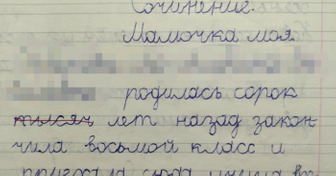 Сочинение.
Мамочка моя
родилась сорок
тысяч лет назад закан
чила восьмой класс и
приехала сюда